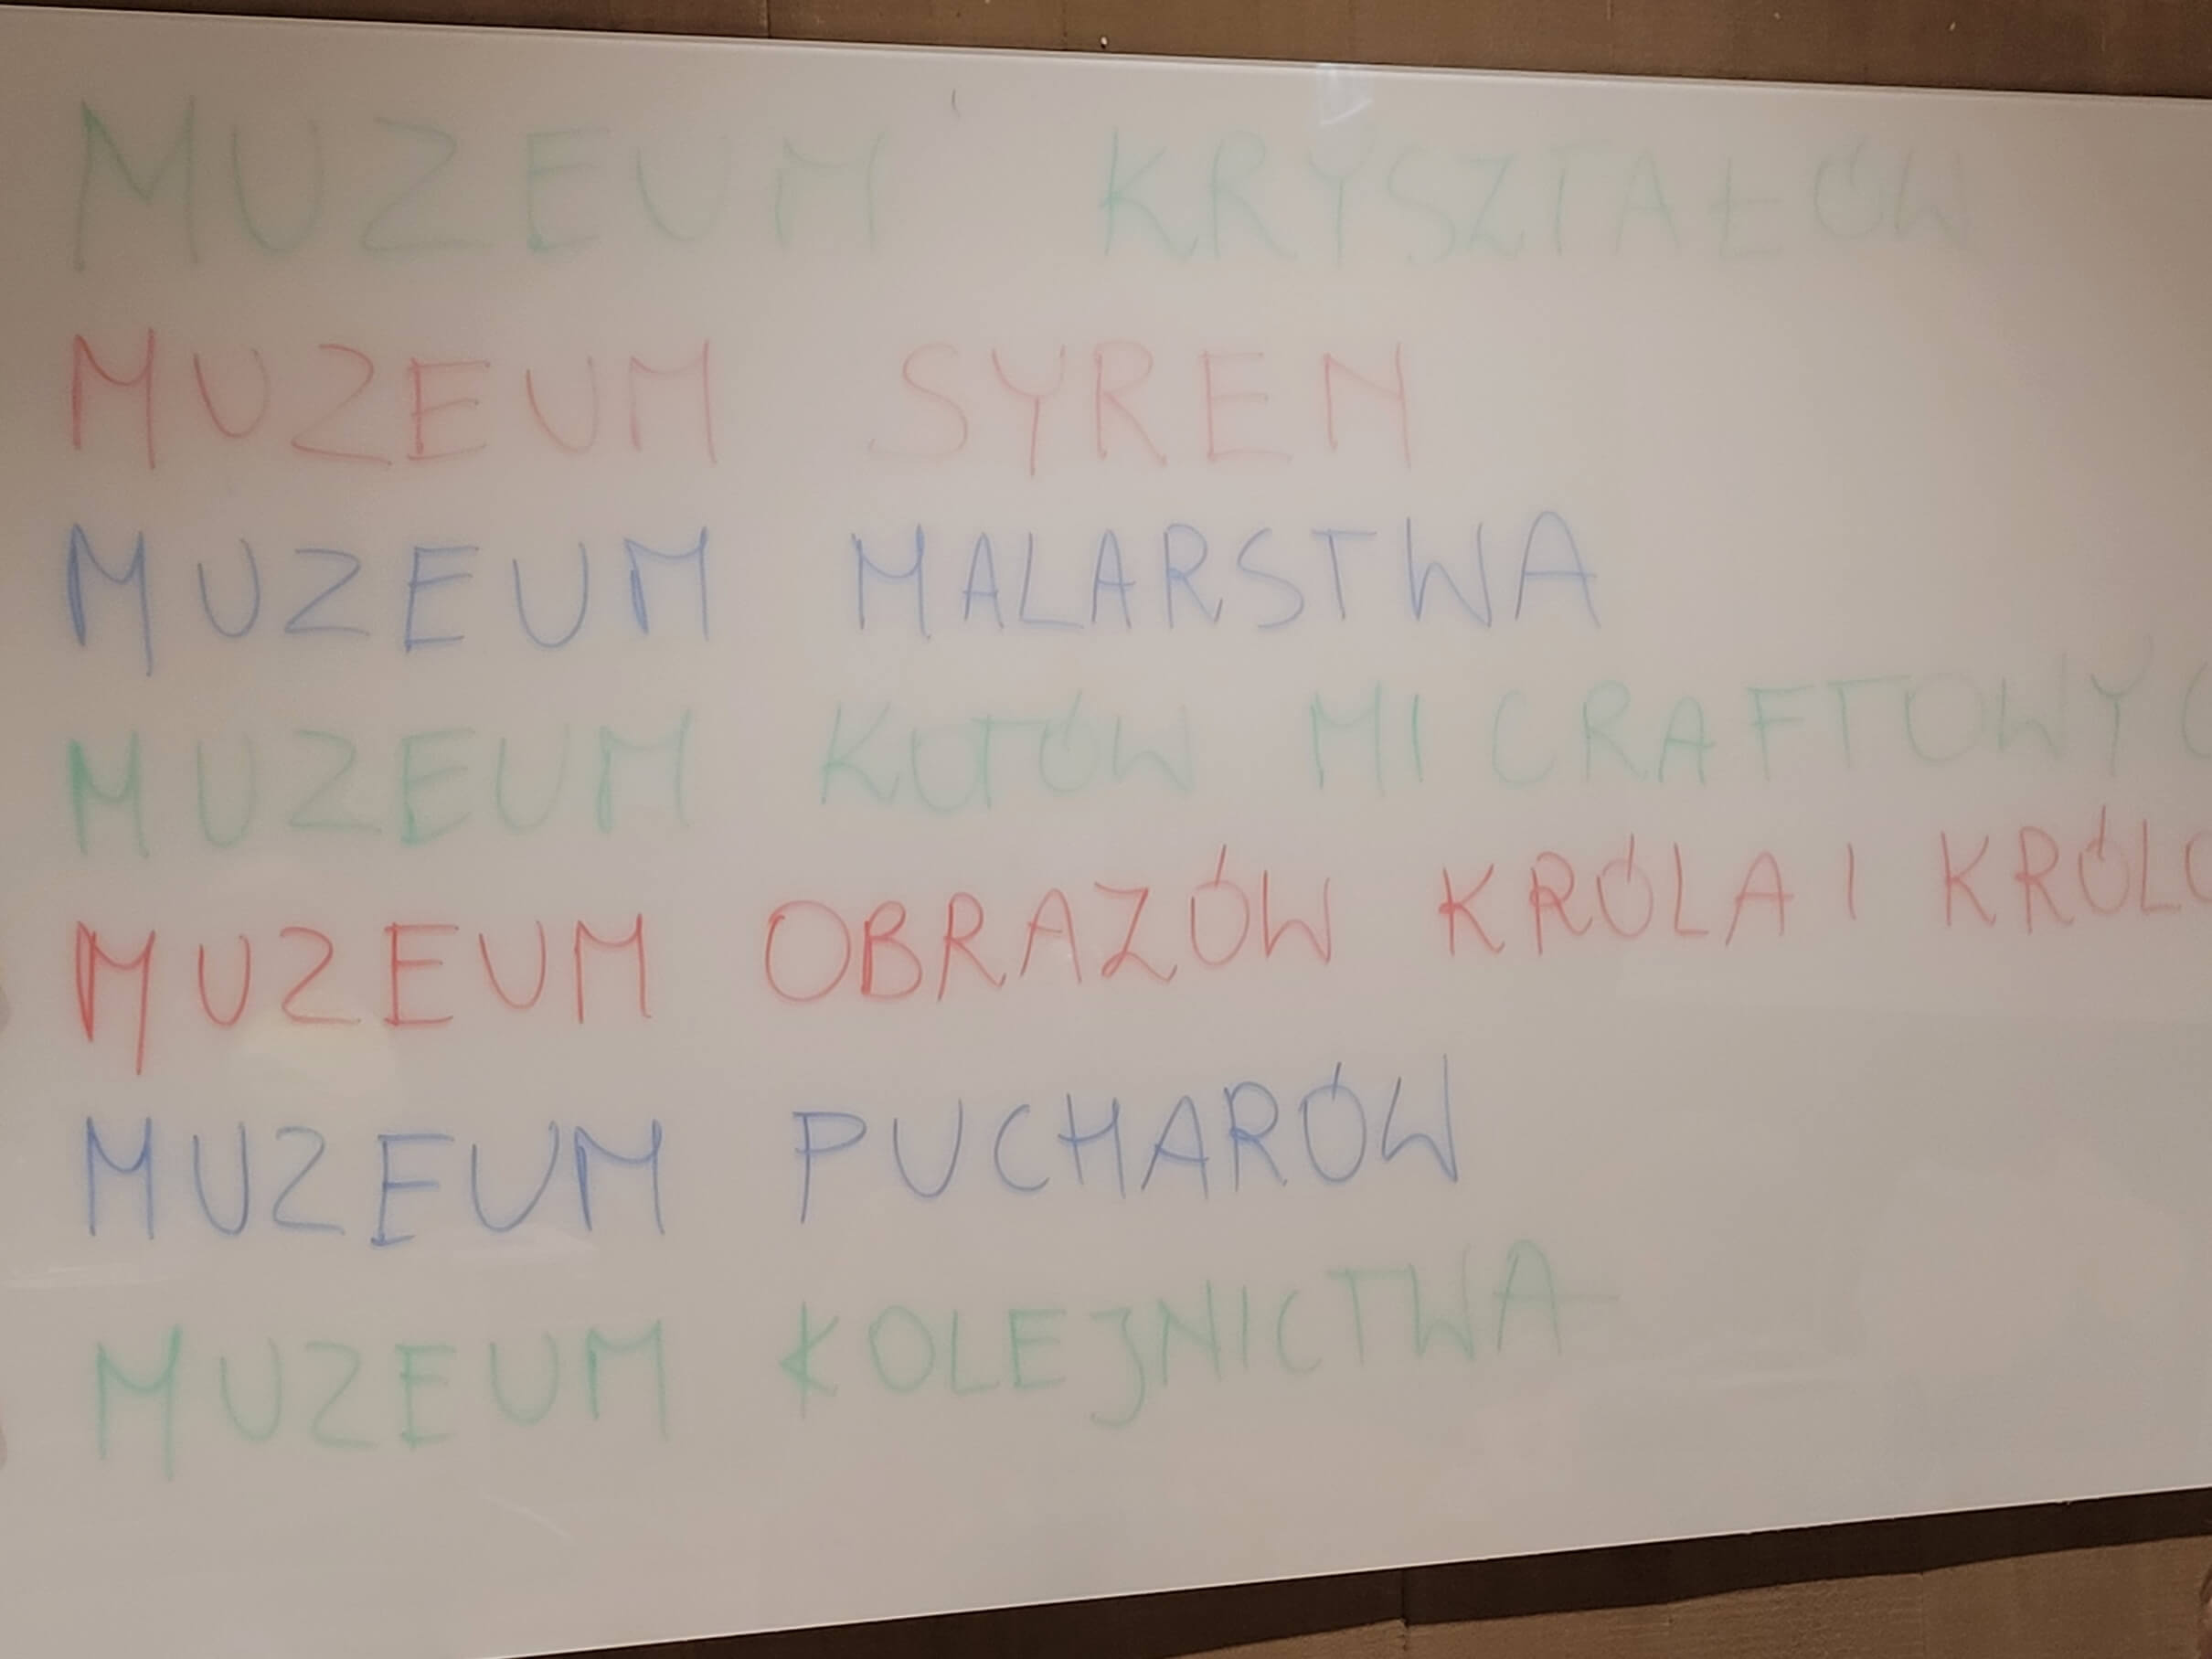 MUZEUM KRYSZTAŁÓW
MUZEUM SYREN
MUZEUM MALARSTWA
MUZEUM MI CRAFTOWYC
MUZEUM OBRAZÓW KRÓLA I KRÓLO
MUZEUM PUCHARÓW
MUZEUM KOLEJNICTWA